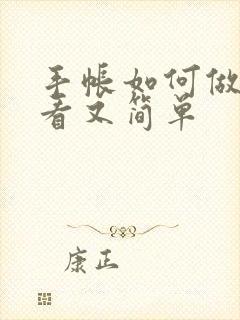 手帐如何做
看又简单
康正